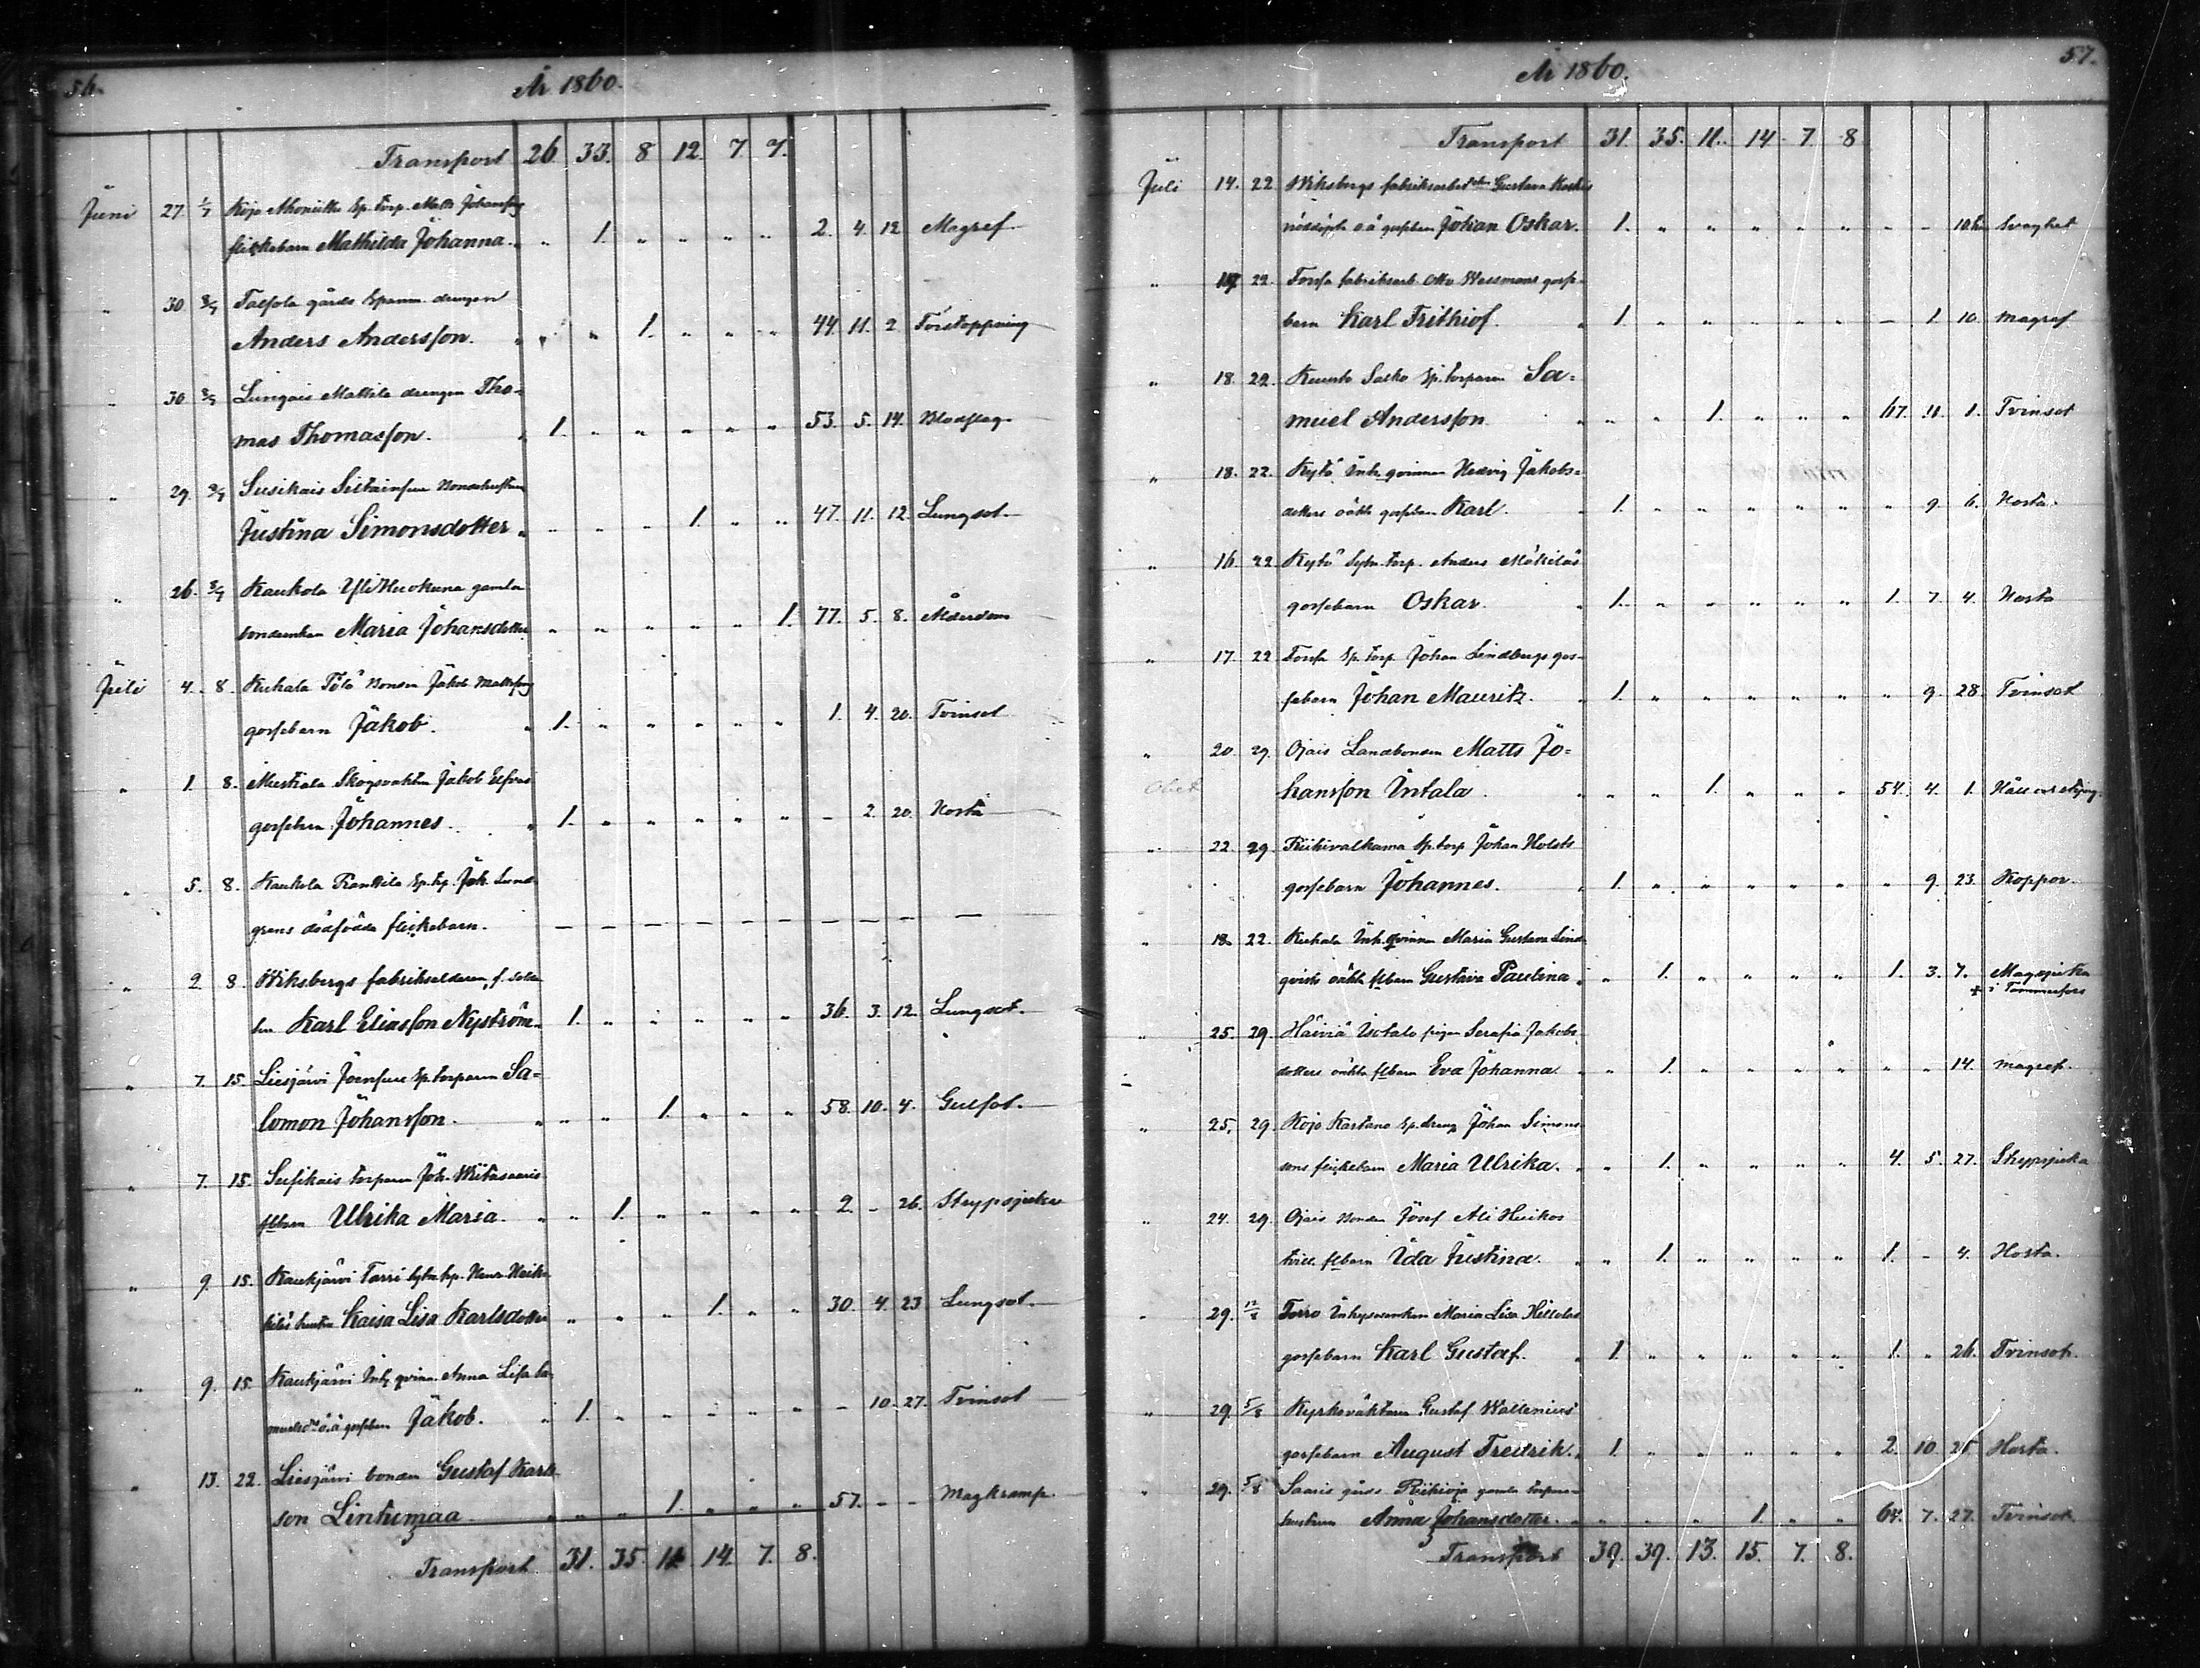 56.
År 1860.
Transport 26 33. 8 12. 7 7.
Juni 27. 1/7 Kojo Sp. torp. Matts Johansfs
flickebarn Mathilda Johanna. " 1. " " " " 2. 4. 12 Magref
" 30 8/7 gårds Spanm. drengen
Anders Andersson. " " 1. " " " 44. 11. 2 Förstoppning
" 30 8/7 drengen Tho-
mas Thomasson. 1. " " " " " 53. 5. 14. Blodslag
" 29. 8/7 Susikais
Justina Simonsdotter " " " 1. " " 47. 11. 12. Lungsot
" 26. 8/7 Kaukola Yli gamla
Maria Johansdotter " " " " " 1. 77. 5. 8. Ålderdom
Juli 4. 8. Kuhala Bonden Jakob Mattsfs
gossebarn Jakob. 1. " " " " " 1. 4. 20. Tvinsot
" 1. 8. Mustiala Skogsvakten Jakob
gossebarn Johannes. 1. " " " " " - 2. 20. Hosta
" 5. 8. Kaukola Sp. tp. Joh. Lund-
grens dödfödda flickebarn. — — — — — — — — — —
" 2 8. Wiksbergs f.
Karl Eliasson Nyström. 1. " " " " " 36. 3. 12. Lungsot.
" 7. 15. Liesjärvi Sp. torparen Sa-
lomon Johansson. " " 1. " " " 58. 10. 4. Gulsot.
" 7. 15. Susikais torparen Joh.
flbarn Ulrika Maria. " 1. " " " " 2. - 26. Slyppsjuka
" 9. 15. Kaukjärvi
hustru Kaisa Lisa Karlsdotter " " " 1. " " 30. 4. 23 Lungsot.
" 9. 15. Kaukjärvi Inh. qvinn. Anna Lisa
o. ä gossebarn Jakob. 1. " " " " " - 10. 27. Tvinsot
" 13. 22. Liesjärvi bonden Gustaf Karls-
son Lintumaa " " 1. " " " 57. - - Magkramp.
Transport 31. 35. 11. 14. 7. 8.
57.
År 1860.
Transport 31. 35. 11. 14. 7. 8
Juli 14. 22 Wiksbergs Gustava
o ä gossebarn Johan Oskar. 1. " " " " " - - Svaghet
" 22. Forssa fabriksarb. Otto Wessmans gosse-
barn Karl Frithiof. 1. " " " " " - 1. 10. Magref
" 18. 22. Sp. torparen Sa-
muel Andersson. " " 1. " " " 67. 11. 1. Tvinsot
" 18. 22. Kytö Inh. qvinnan Hedvig Jakobs-
dotters oäkta gossebarn Karl. 1. " " " " " " 9. 6. Hosta.
" 16. 22 Kytö Sytn. torp. Anders Mäkiläs
gossebarn Oskar. 1. " " " " " 1. 7. 4. Hosta
" 17. 22 Forssa Sp. torp. Johan Lindbergs gos-
sebarn Johan Mauritz. 1. " " " " " " 9. 28. Tvinsot
" 20. 29. Ojais Landbonden Matts Jo-
hansson Intala. " " 1. " " " 54. 4. 1.
" 22. 29. Riihivalkama Sp. torp Johan Holsts
gossebarn Johannes. 1. " " " " " " 9. 23. Koppor.
" 18. 22. Kuhala Inh. qvinnan Maria Gustava Lind-
qvists oäkta flbarn Gustava Paulina. " 1. " " " " 1. 3. 7. Magsjuka
+ i Tammerfors
" 25. 29. Häiviä Isotalo pigan Serafia Jakobs-
dotters oäkta flbarn Eva Johanna. " 1. " " " " " " 14. Magref.
" 25. 29. Kojo Kartano Sp. dreng Johan Simons-
sons flickebarn Maria Ulrika. " 1. " " " " 4. 5. 27. Slyppsjuka
" 24. 29. Ojais Bonden Josef Ali Huikos
tvill. flbarn Ida Justina. " 1. " " " " 1. - 4. Hosta.
29. 12/8 Torro Maria Lisa
gossebarn Karl Gustaf. 1. " " " " " 1. " 26. Tvinsot.
" 29. 5/8 Kyrkoväktaren Gustaf Wallenius
gossebarn August Fredrik. 1. " " " " " 2. 10. 25 Hosta.
" 29. 5/8 Saaris gårds gamla torpare-
hustrun Anna Johansdotter. " " " 1. " " 64. 7. 27. Tvinsot.
Transport 39. 39. 13. 15. 7. 8.